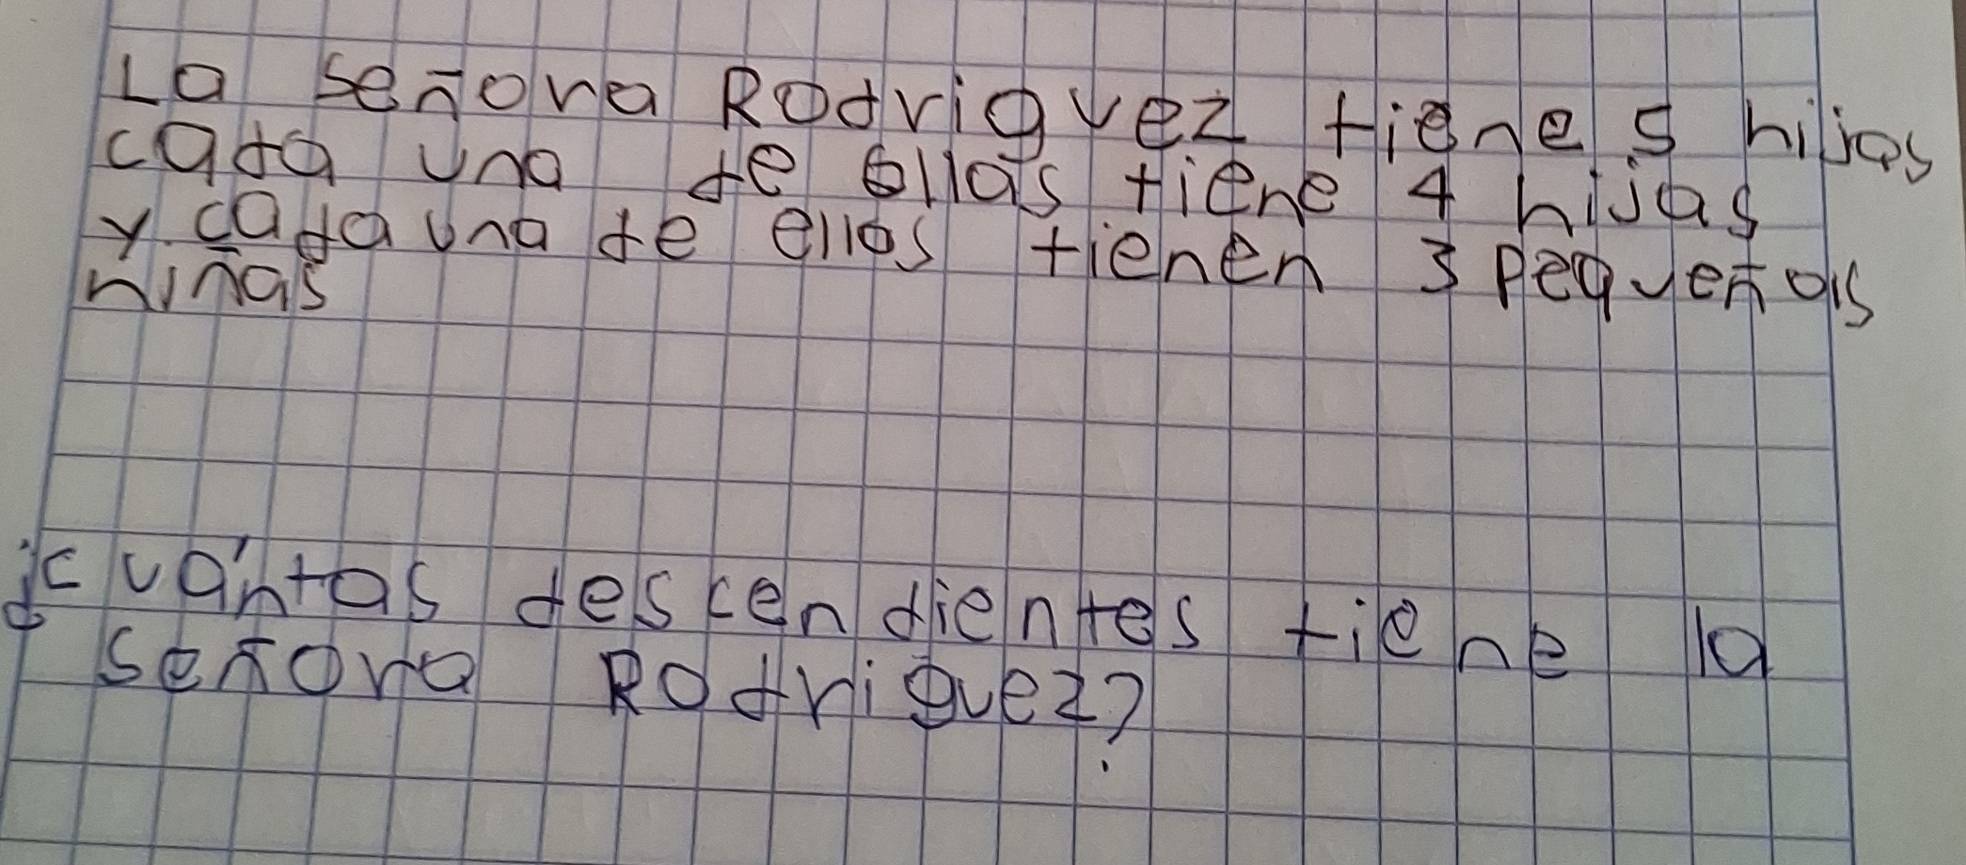 La señora Rodriguez tiene 5 hijas
cada una de ellas tiene 4 hijas
y cada una de ellas tienen 3 pequeñas
niñas
¿cuántas descendientes tiene la
señora Rodriguez?